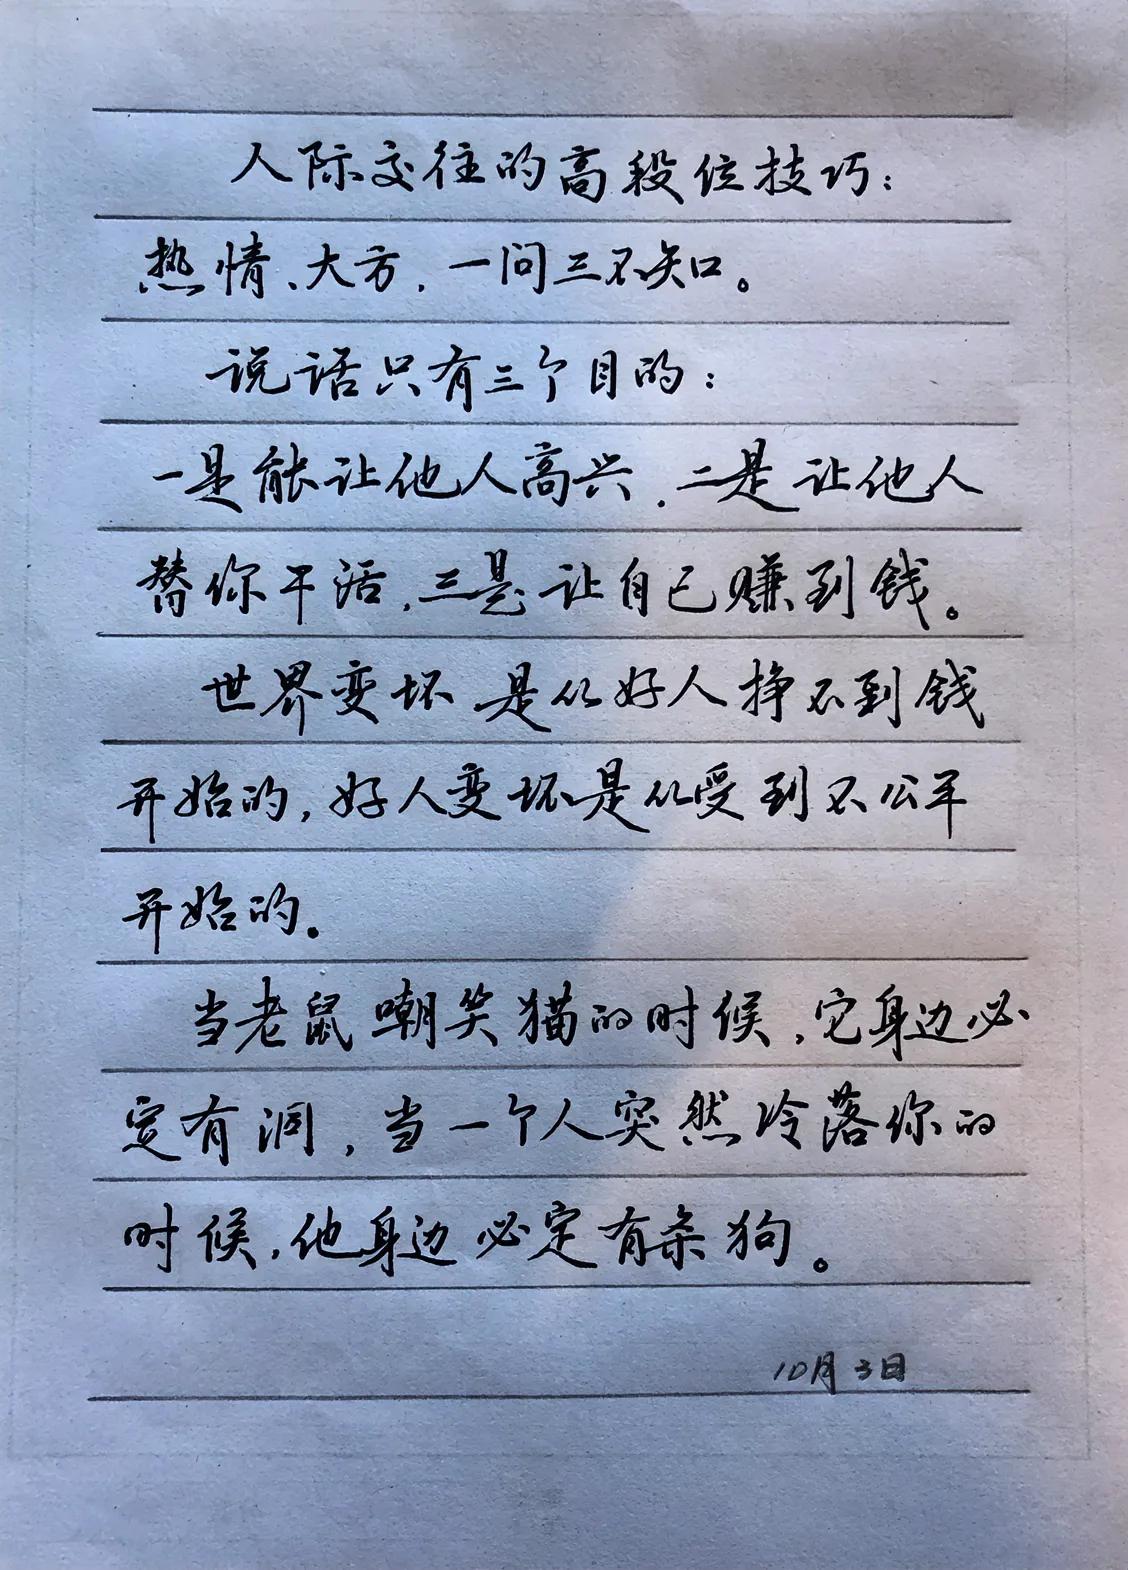 人际交往的高段位技巧：
热情、大方，一问三不知。
说话只有三个目的：
一是能让他人高兴，二是让他人
替你干活，三是让自己赚到钱。
世界变坏是从好人挣不到钱
开始的，好人变坏是从受到不公平
开始的。
当老鼠嘲笑猫的时候，它身边必
定有洞，当一个人突然冷落你的
时候，他身边必定有杂狗。
10月3日